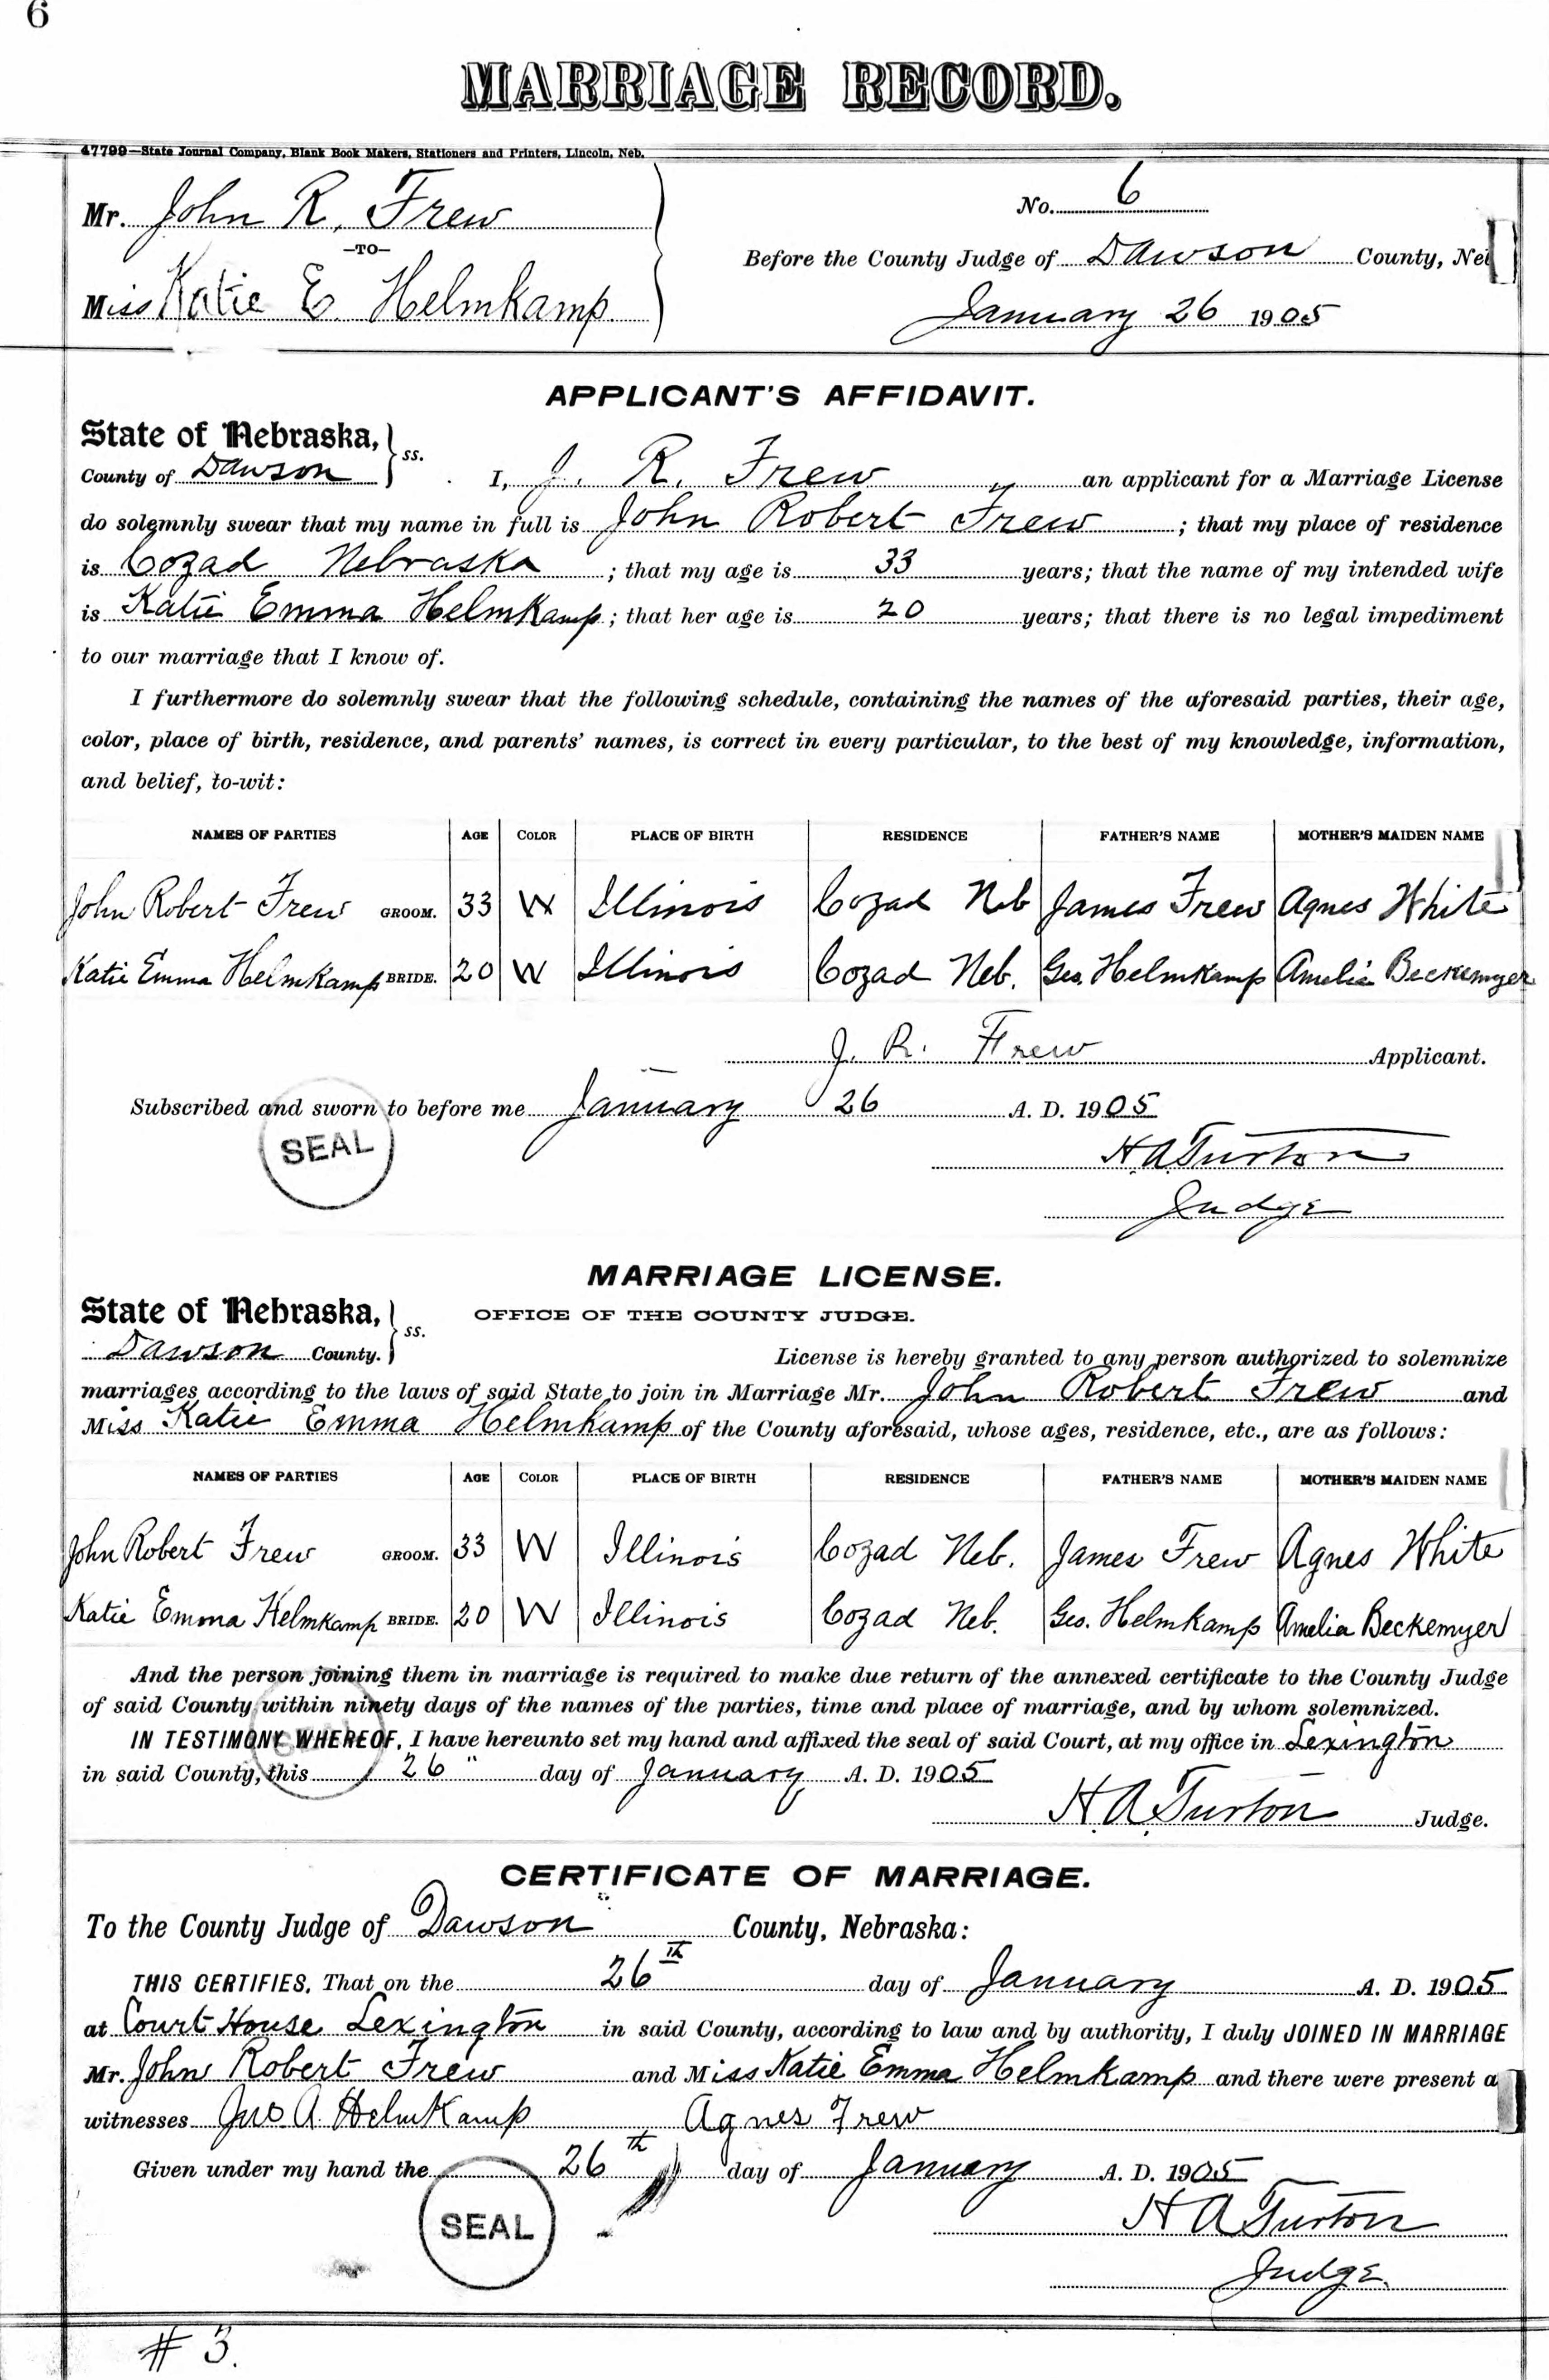 6
MARRIAGE RECORD.
47799—State Journal Company, Blank Book Makers, Stationers and Printers, Lincoln, Neb.
Mr. John R. Frew
—TO—
Miss Katie E. Helmkamp
No. 6
Before the County Judge of Dawson County, Ne
January 26 1905
APPLICANT'S AFFIDAVIT.
State of Nebraska, ss.
County of Dawson
I, J. R. Frew an applicant for a Marriage License
do solemnly swear that my name in full is John Robert Frew ; that my place of residence
is Cozad Nebraska ; that my age is 33 years; that the name of my intended wife
is Katie Emma Helmkamp ; that her age is 20 years; that there is no legal impediment
to our marriage that I know of.
I furthermore do solemnly swear that the following schedule, containing the names of the aforesaid parties, their age,
color, place of birth, residence, and parents' names, is correct in every particular, to the best of my knowledge, information,
and belief, to-wit:
NAMES OF PARTIES AGE COLOR PLACE OF BIRTH RESIDENCE FATHER'S NAME MOTHER'S MAIDEN NAME
John Robert Frew GROOM. 33 W Illinois Cozad Neb James Frew Agnes White
Katie Emma Helmkamp BRIDE. 20 W Illinois Cozad Neb. Geo. Helmkamp Amelia Beckemyer
J. R. Frew Applicant.
Subscribed and sworn to before me January 26 A. D. 1905
SEAL
H. A. Turton
Judge
MARRIAGE LICENSE.
State of Nebraska, ss.
OFFICE OF THE COUNTY JUDGE.
Dawson County.
License is hereby granted to any person authorized to solemnize
marriages according to the laws of said State to join in Marriage Mr. John Robert Frew and
Miss Katie Emma Helmkamp of the County aforesaid, whose ages, residence, etc., are as follows:
NAMES OF PARTIES AGE COLOR PLACE OF BIRTH RESIDENCE FATHER'S NAME MOTHER'S MAIDEN NAME
John Robert Frew GROOM. 33 W Illinois Cozad Neb. James Frew Agnes White
Katie Emma Helmkamp BRIDE. 20 W Illinois Cozad Neb. Geo. Helmkamp Amelia Beckemyer
And the person joining them in marriage is required to make due return of the annexed certificate to the County Judge
of said County within ninety days of the names of the parties, time and place of marriage, and by whom solemnized.
IN TESTIMONY WHEREOF, I have hereunto set my hand and affixed the seal of said Court, at my office in Lexington
in said County, this 26" day of January A. D. 1905
H. A. Turton Judge.
CERTIFICATE OF MARRIAGE.
To the County Judge of Dawson County, Nebraska:
THIS CERTIFIES, That on the 26th day of January A. D. 1905
at Court House Lexington in said County, according to law and by authority, I duly JOINED IN MARRIAGE
Mr. John Robert Frew and Miss Katie Emma Helmkamp and there were present a
witnesses Jno A. Helmkamp Agnes Frew
Given under my hand the 26th day of January A. D. 1905
SEAL
H A Turton
Judge.
# 3.